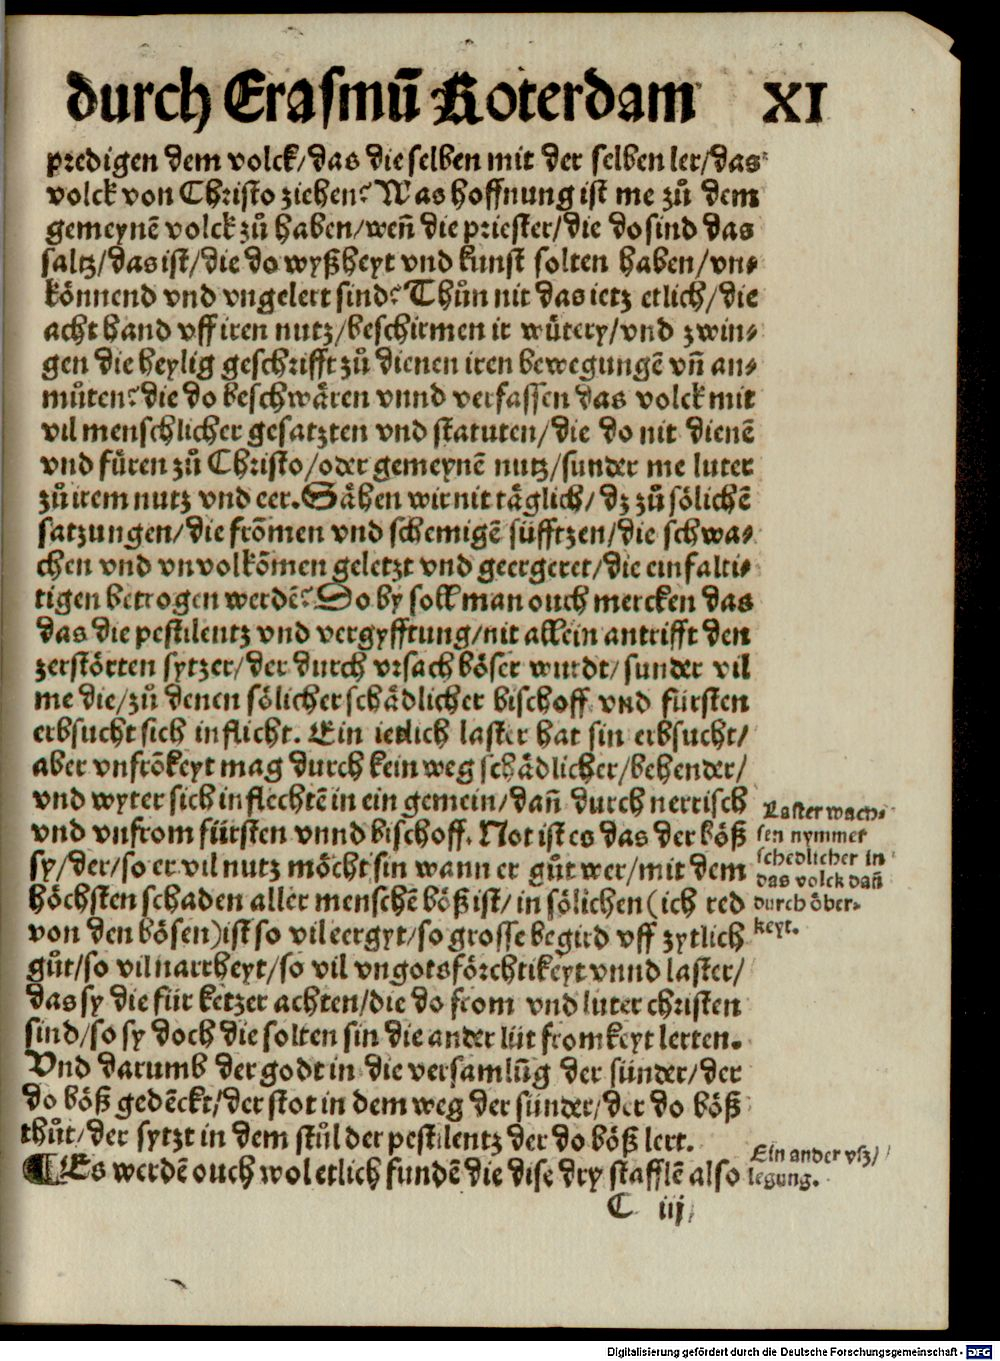 durch Erasmū Roterdam XI
predigen dem volck/das die selben mit der selben ler/das
volck von Christo ziehen? Was hoffnung ist me zů dem
gemeynē volck zů haben/weñ die priester/die do sind das
saltz/das ist/die do wyßheyt vnd kunst solten haben/vn⸗
könnend vnd vngelert sind? Thůn nit das ietz etlich/die
acht hand vff iren nutz/beschirmen ir wütery/vnd zwin⸗
gen die heylig geschrifft zů dienen iren bewegungē vñ an⸗
můten? die do beschwären vnnd verfassen das volck mit
vil menschlicher gesatzten vnd statuten/die do nit dienē
vnd füren zů Christo/oder gemeynē nutz/sunder me luter
zů irem nutz vnd eer. Sähen wir nit täglich/dz zů sölichē
satzungen/die frõmen vnd schemigē süfftzen/die schwa⸗
chen vnd vnvolkõmen geletzt vnd geergeret/die einfalti⸗
tigen betrogen werdē? Do by soll man ouch mercken das
das die pestilentz vnd vergyfftung/nit allein antrifft den
zerstörten sytzer/der durch vrsach böser wurdt/sunder vil
me die/zů denen sölicher schädlicher bischoff vnd fürsten
erbsucht sich inflicht. Ein ietlich laster hat sin erbsucht/
aber vnfrõkeyt mag durch kein weg schädlicher/behender/
vnd wyter sich inflechtē in ein gemein/dañ durch nerrisch
vnd vnfrom fürsten vnnd bischoff. Not ist es das der böß
sy/der/so er vil nutz möcht sin wann er gůt wer/mit dem
höchsten schaden aller menschē böß ist/in sölichen (ich red
von den bösen) ist so vil eergyt/so grosse begird vff zytlich
gůt/so vil narrheyt/so vil vngotsförchtikeyt vnnd laster/
das sy die für ketzer achten/die do from vnd luter christen
sind/so sy doch die solten sin die ander lüt fromkeyt lerten.
Vnd darumb der godt in die versamlũg der sünder/der
do böß gedēckt/der stot in dem weg der sünder/der do böß
thůt/der sytzt in dem stůl der pestilentz der do böß lert.
¶ Es werdē ouch wol etlich fundē die dise dry stafflē also
Laster wach⸗
sen nymmer
schedlicher in
das volck dañ
durch öber⸗
keyt.
Ein ander vß/
legung.
C iij
Digitalisierung gefördert durch die Deutsche Forschungsgemeinschaft - DFG